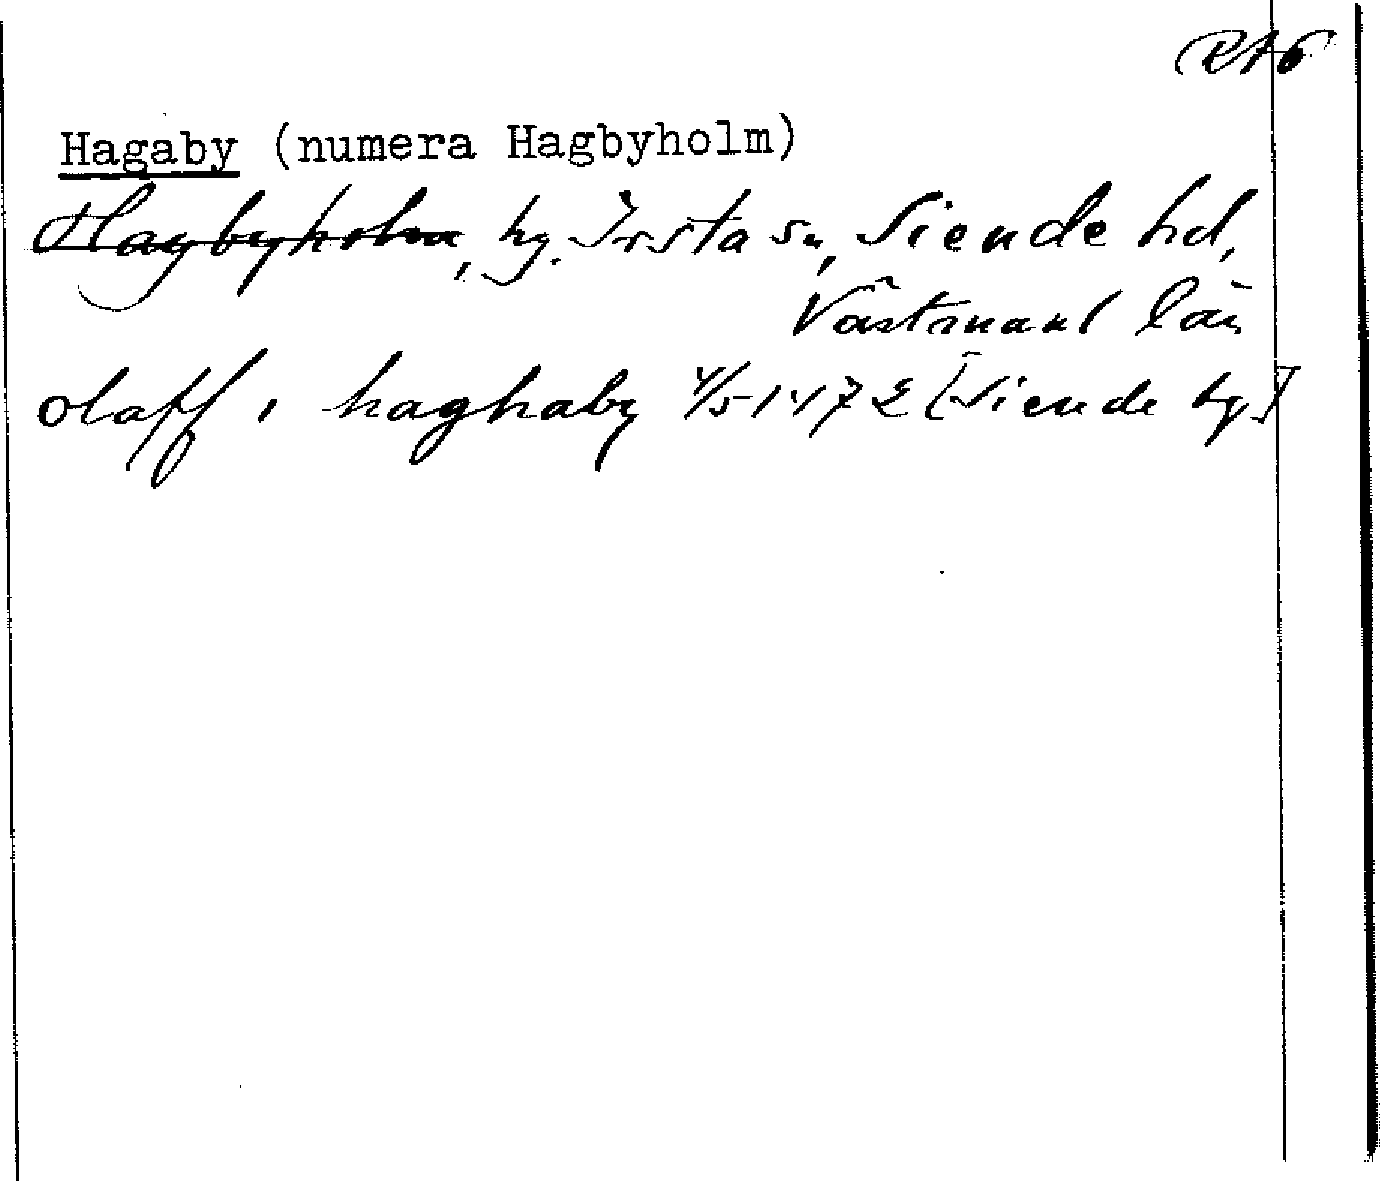 RAö
Hagaby (numera Hagbyholm)
Hagbyholm, hg. Irsta sn, Siende hd,
Västmanl län
olaff i haghaby 4/5 1472 [Siende hg]